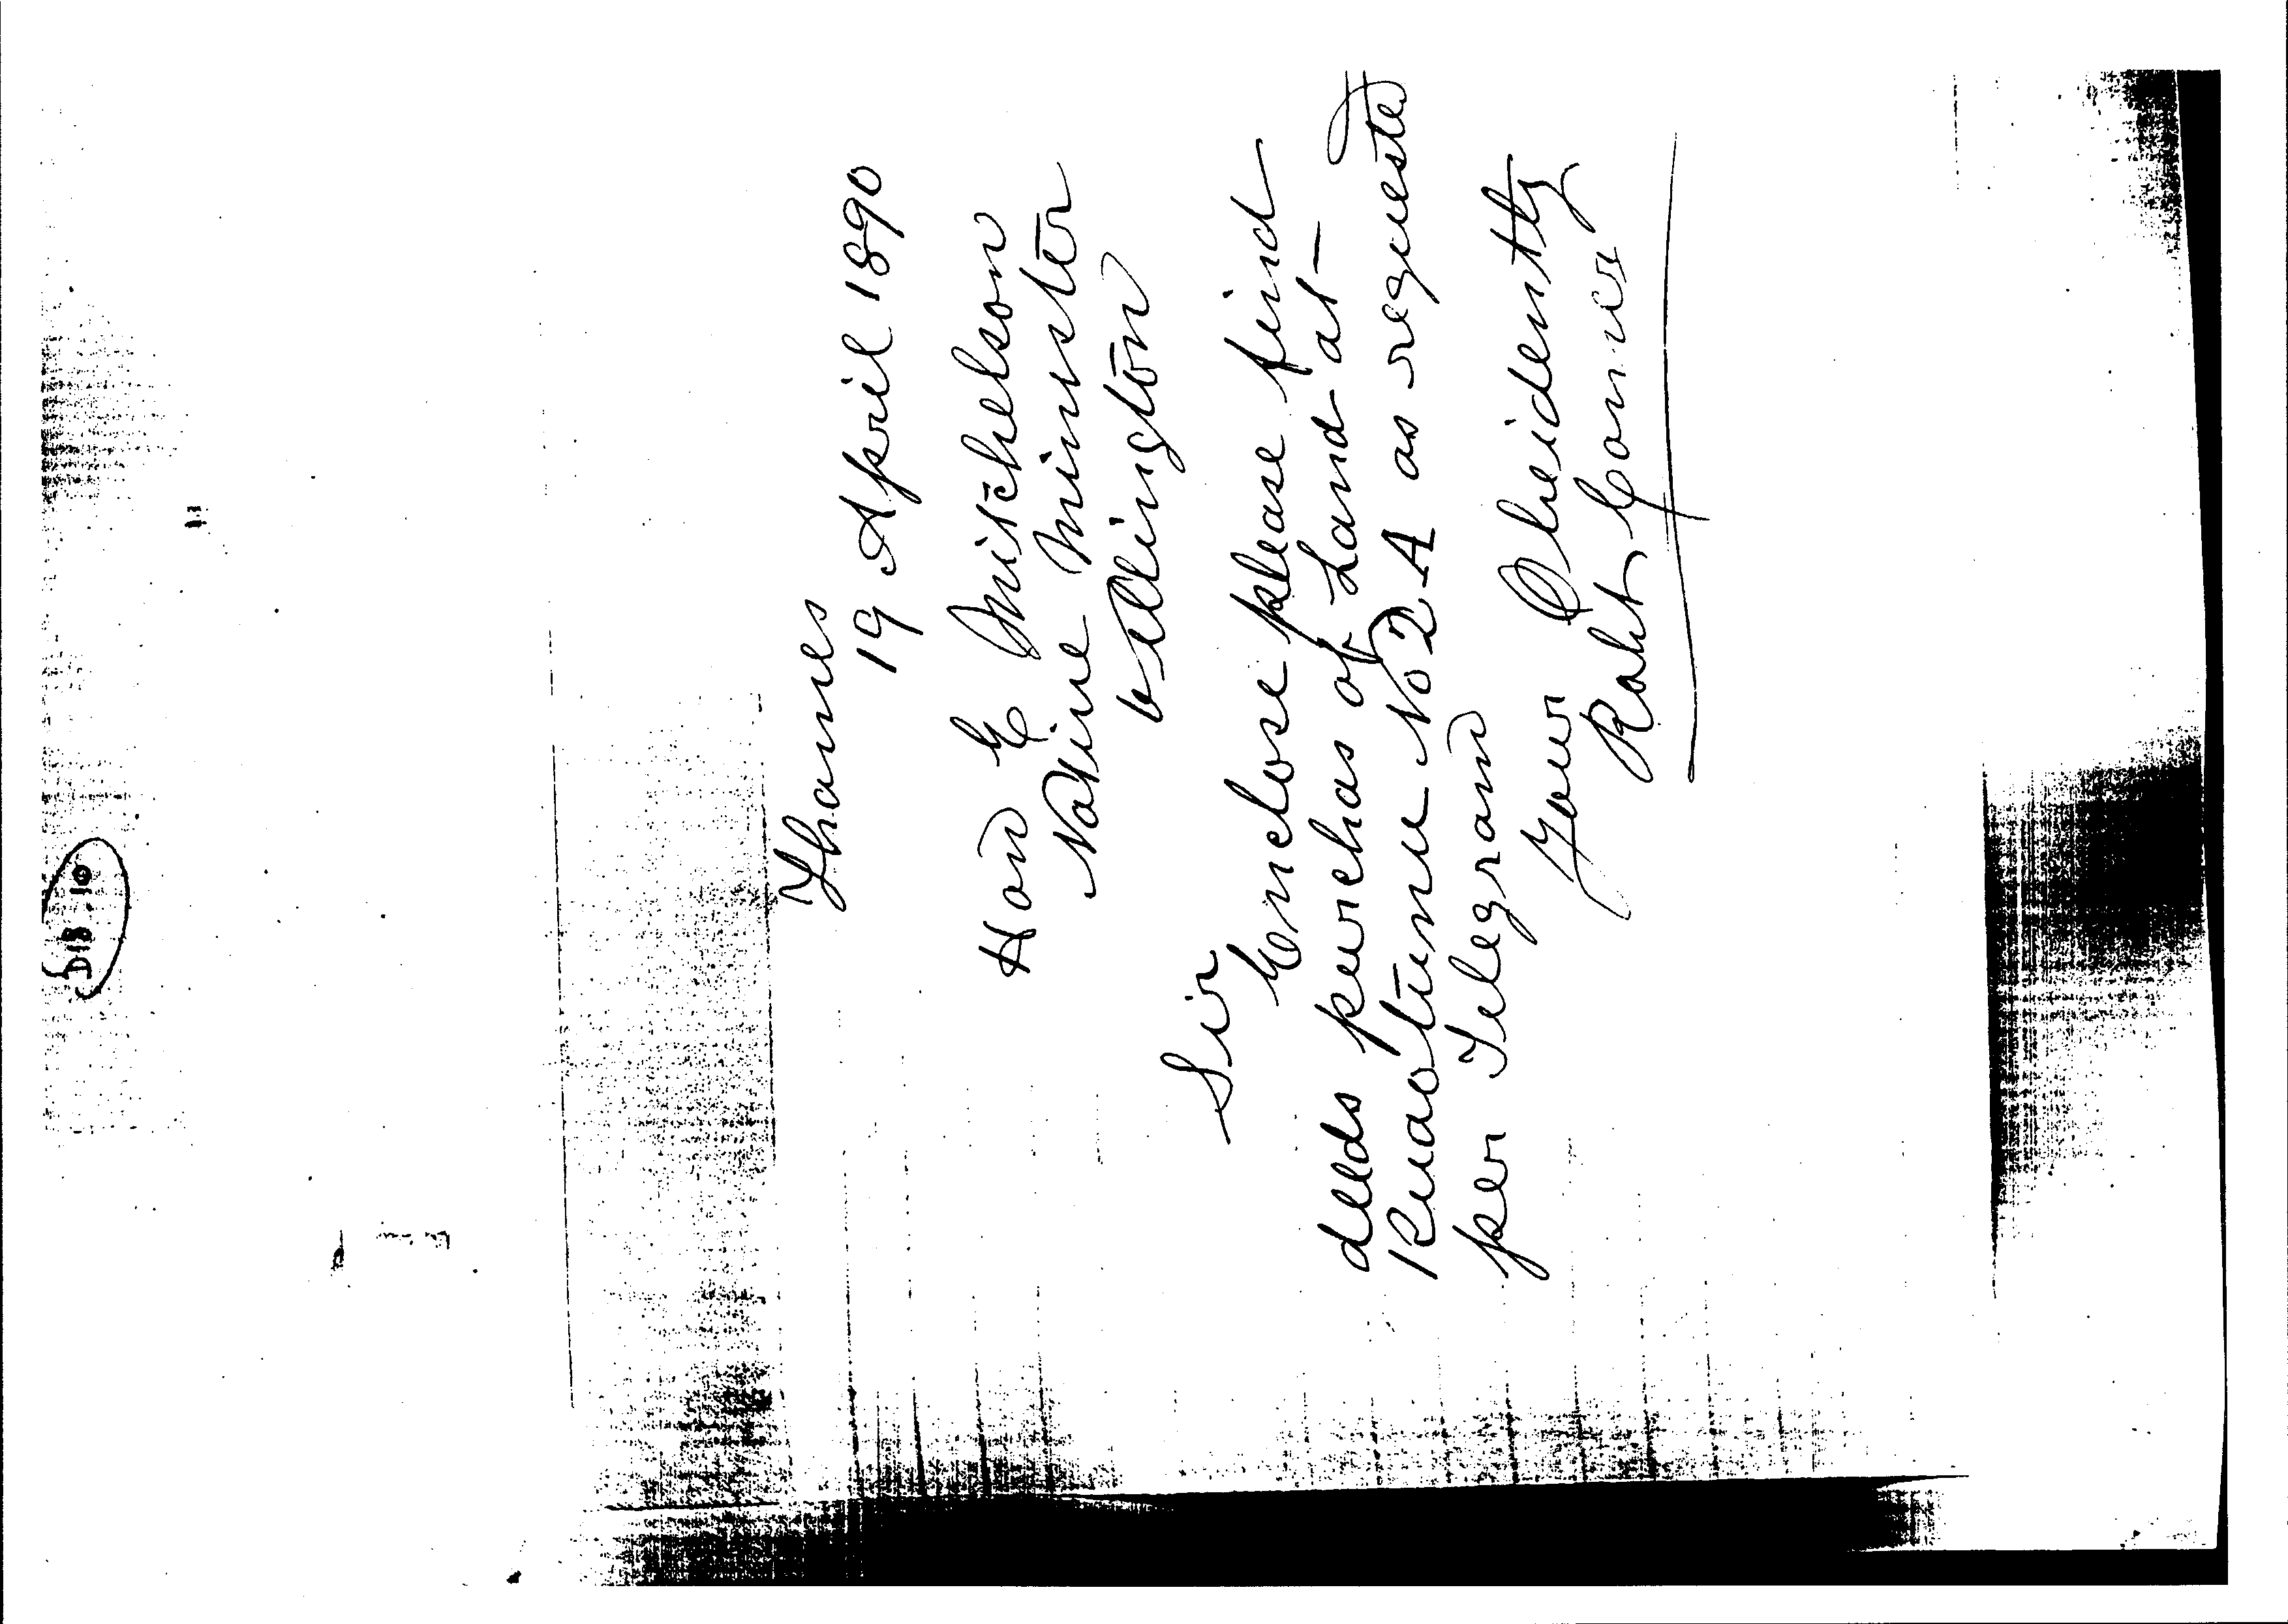 D18.10
Thames
19 April 1890
Hon E Mitchelson
Native Minister
Wellington
Sir
Enclose please find
deeds purchas of Land at
Ruaotunu No 2A as requested
per Telegram
Your Obeidently
Robt Comer